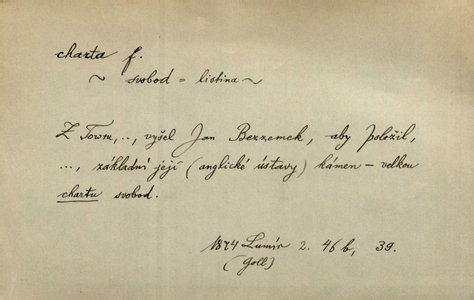 charta f.
~ svobod = listina ~
Z Towru, .., vyšel Jan Bezzemek, aby položil,
..., základní její (anglické ústavy) kámen – velkou
chartu svobod.
1874 Lumír 2. 46 b, 39.
(Goll)